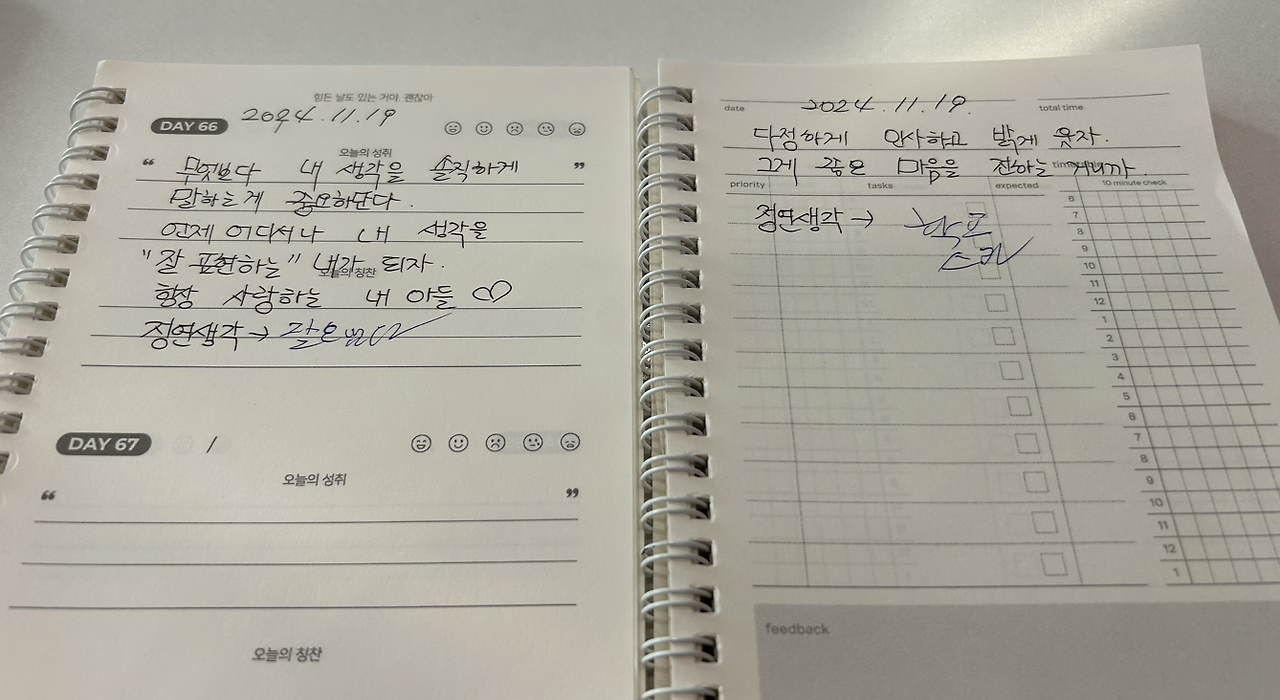 힘든 날도 있는 거야. 괜찮아
DAY 66 2024.11.19
오늘의 성취
“ 무엇보다 내 생각을 솔직하게 ”
말하는게 중요하단다.
언제 어디서나 내 생각을
"잘 표현하는" 내가 되자.
오늘의 칭찬
항상 사랑하는 내 아들 ♡
정연생각 →
DAY 67 /
오늘의 성취
“ ”
오늘의 칭찬
date 2024.11.19. total time
다정하게 인사하고 밝게 웃자.
그게 좋은 마음을 전하는 거니까.
priority tasks expected 10 minute check
정연생각 →
6
7
8
9
10
11
12
1
2
3
4
5
6
7
8
9
10
11
12
1
feedback